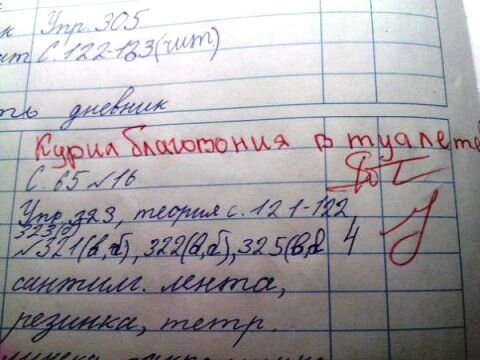 к Упр 305
ит С. 122-123(чит)
ть дневник
Курил благовония в туалете
С. 65 №16
Упр 323, теория с. 121-122,
323(б)
№321(в,г), 322(в,г), 325(в,г 4
сантим. лента,
резинка, тетр.